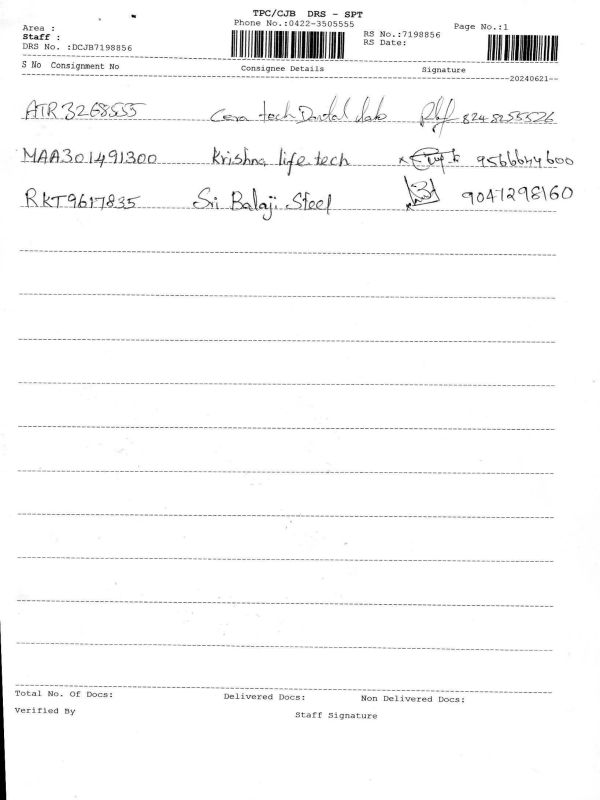 TPC/CJB DRS - SPT
Area : Phone No.:0422-3505555 Page No.:1
Staff : RS No.:7198856
DRS No. :DCJB7198856 RS Date:
S No Consignment No Consignee Details Signature
20240621
ATR3268555 Cera tech Dental lab 8248255526
MAA301491300 Krishna life tech 9566644600
RKT9617835 Sri Balaji Steel 9041298160
Total No. Of Docs: Delivered Docs: Non Delivered Docs:
Verified By Staff Signature